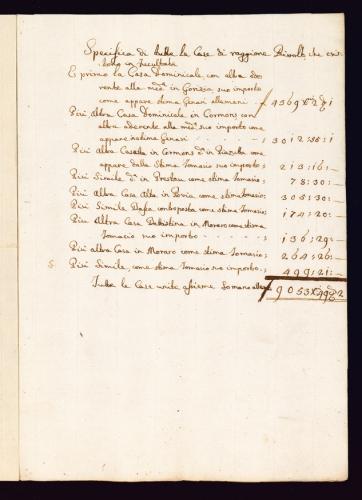 Specifica di tutte le Case di raggione Rivolti che exi
stono in facultate
E primo la Casa Dominicale, con altra ade
rente alla med.a in Gorizia, suo importo
come appare stima Genari allemani - f 4369 x 2
Più Altra Casa Dominicale, in Cormons con
altra aderente alla med.a suo importo come
appare Genari - 3012:55:1
Più Altra Casa in Cormons come
appare dalla Stima Tomasio suo importo: 213:16:
Più Simile in come stima Tomasio: 78:30:
Più Altra Casa Alta in come stima Tomasio: 305:30:
Più Simile contraposta come stima Tomasio; 174:20:
Più Altra Casa in Moraro come stima
Tomasio suo importo - - - - 136:29:
Più altra Casa in Moraro come stima Tomasio: 264:26:
5 Più Simile, come stima Tomasio suo importo: 499:21:
Tutte le Case unite assieme Somano f 9053 x 49 2